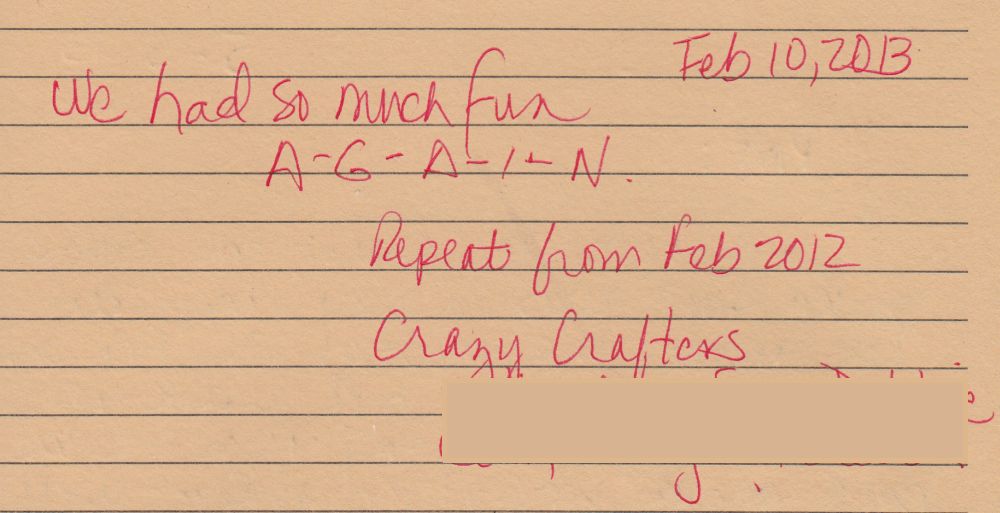 Feb 10, 2013
We had so much fun
A-G-A-I-N.
Repeat from Feb 2012
Crazy Crafters